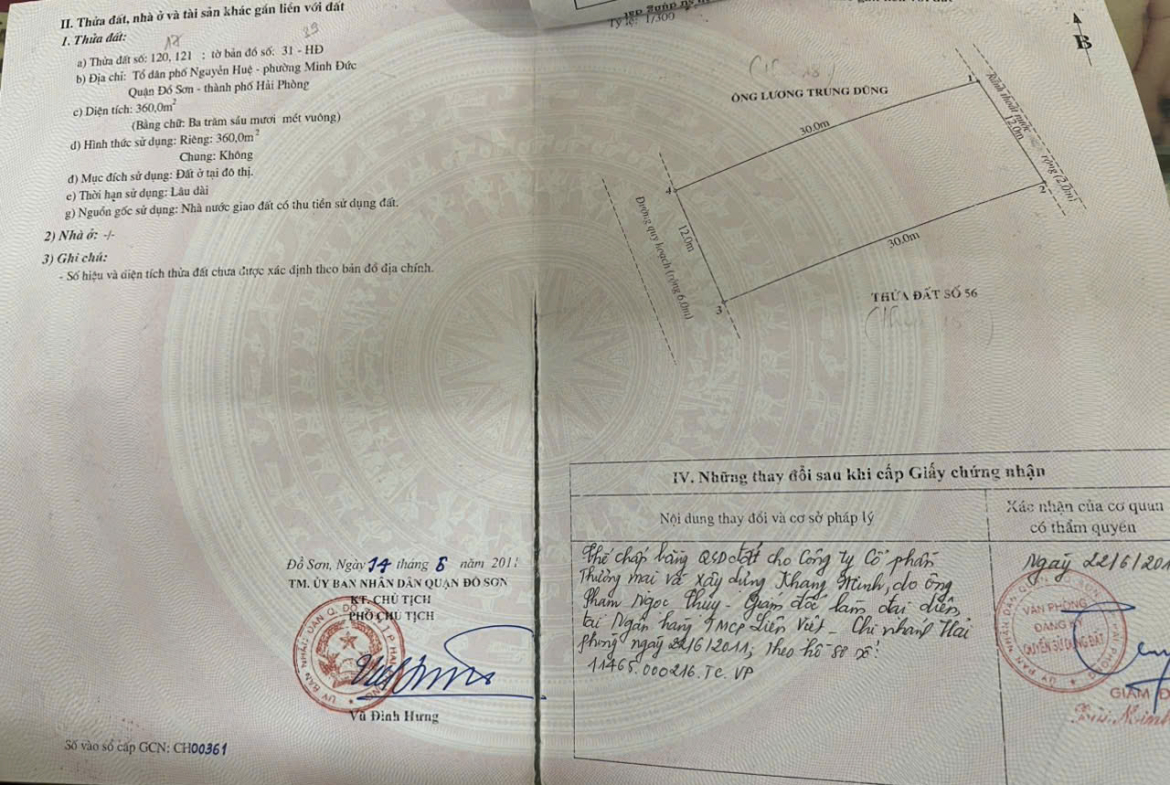 II. Thửa đất, nhà ở và tài sản khác gắn liền với đất
1. Thửa đất:
a) Thửa đất số: 120, 121 ; tờ bản đồ số: 31 - HĐ
b) Địa chỉ: Tổ dân phố Nguyễn Huệ - phường Minh Đức
Quận Đồ Sơn - thành phố Hải Phòng
c) Diện tích: 360,0m²
(Bằng chữ: Ba trăm sáu mươi mét vuông)
d) Hình thức sử dụng: Riêng: 360,0m²
Chung: Không
đ) Mục đích sử dụng: Đất ở tại đô thị.
e) Thời hạn sử dụng: Lâu dài
g) Nguồn gốc sử dụng: Nhà nước giao đất có thu tiền sử dụng đất.
2) Nhà ở: -/-
3) Ghi chú:
- Số hiệu và diện tích thửa đất chưa được xác định theo bản đồ địa chính.
Đồ Sơn, Ngày 14 tháng 6 năm 201
TM. ỦY BAN NHÂN DÂN QUẬN ĐỒ SƠN
KT. CHỦ TỊCH
PHÓ CHỦ TỊCH
Vũ Đình Hưng
Số vào sổ cấp GCN: CH00361
Tỷ lệ: 1/300
B
ÔNG LƯƠNG TRUNG DŨNG
30.0m
1
Rãnh thoát nước rộng (2.0m)
12.0m
2
4
Đường quy hoạch (rộng 6.0m)
12.0m
3
30.0m
THỬA ĐẤT SỐ 56
IV. Những thay đổi sau khi cấp Giấy chứng nhận
Nội dung thay đổi và cơ sở pháp lý
Xác nhận của cơ quan
có thẩm quyền
Thế chấp bằng QSD đất cho Công ty Cổ phần
Thương mại và Xây dựng Khang Minh, do ông
Phạm Ngọc Thủy - Giám đốc làm đại diện,
tại Ngân hàng TMCP Liên Việt - Chi nhánh Hải
Phòng ngày 22/6/2011; Theo hồ sơ số:
11465.000216.TC.VP
Ngày 22/6/201
VĂN PHÒNG
ĐĂNG KÝ
QUYỀN SỬ DỤNG ĐẤT
GIÁM Đ